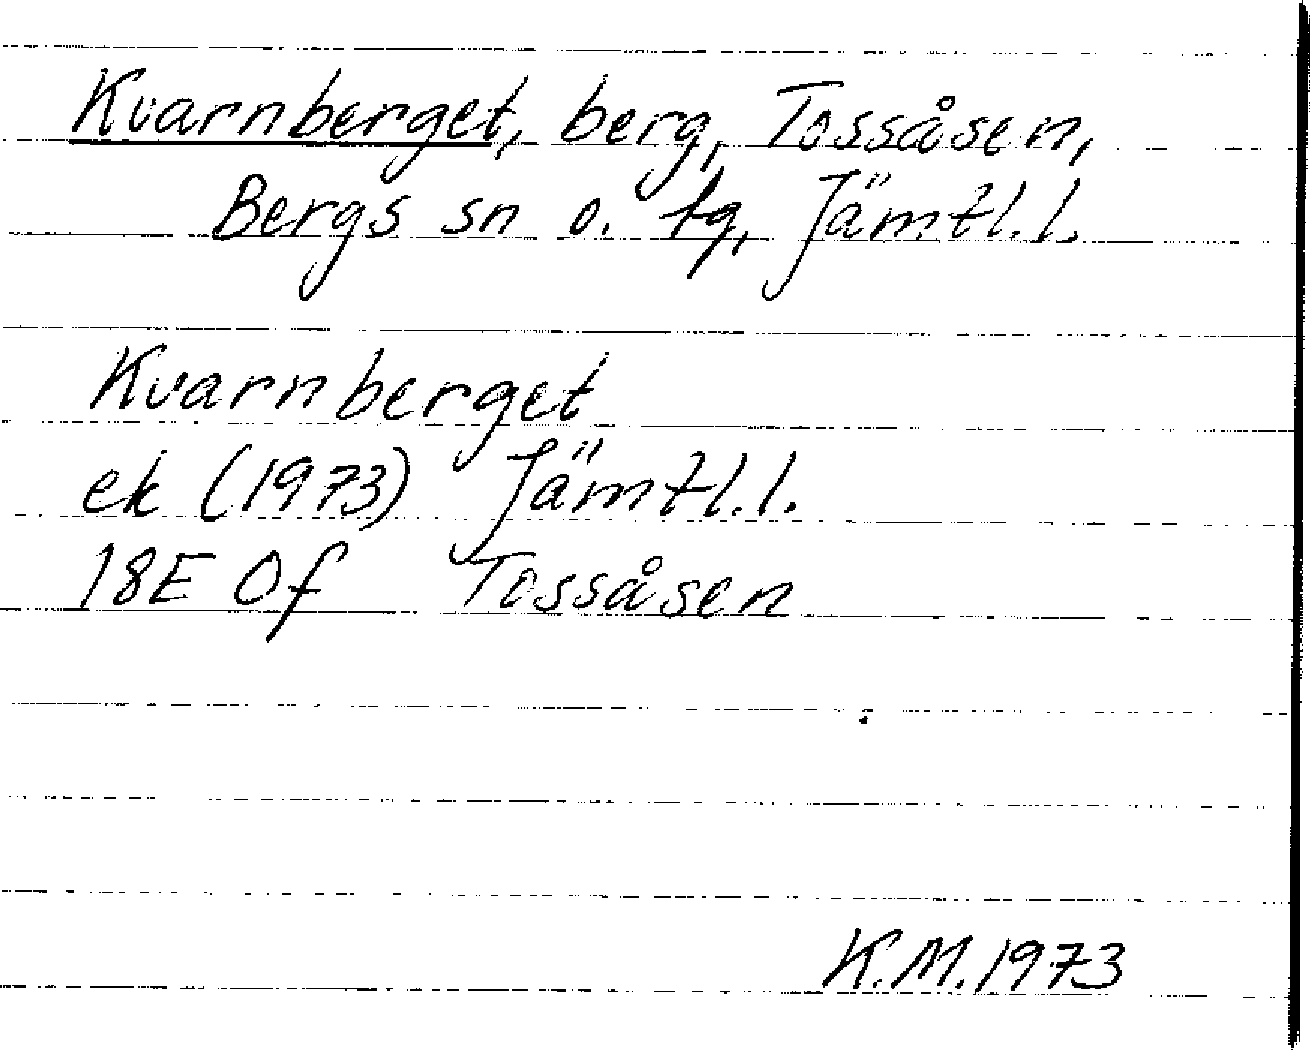 Kvarnberget, berg, Tossåsen,
Bergs sn o. tg, Jämtl.l.
Kvarnberget
ek (1973) Jämtl.l.
18E 0f Tossåsen
K.M.1973